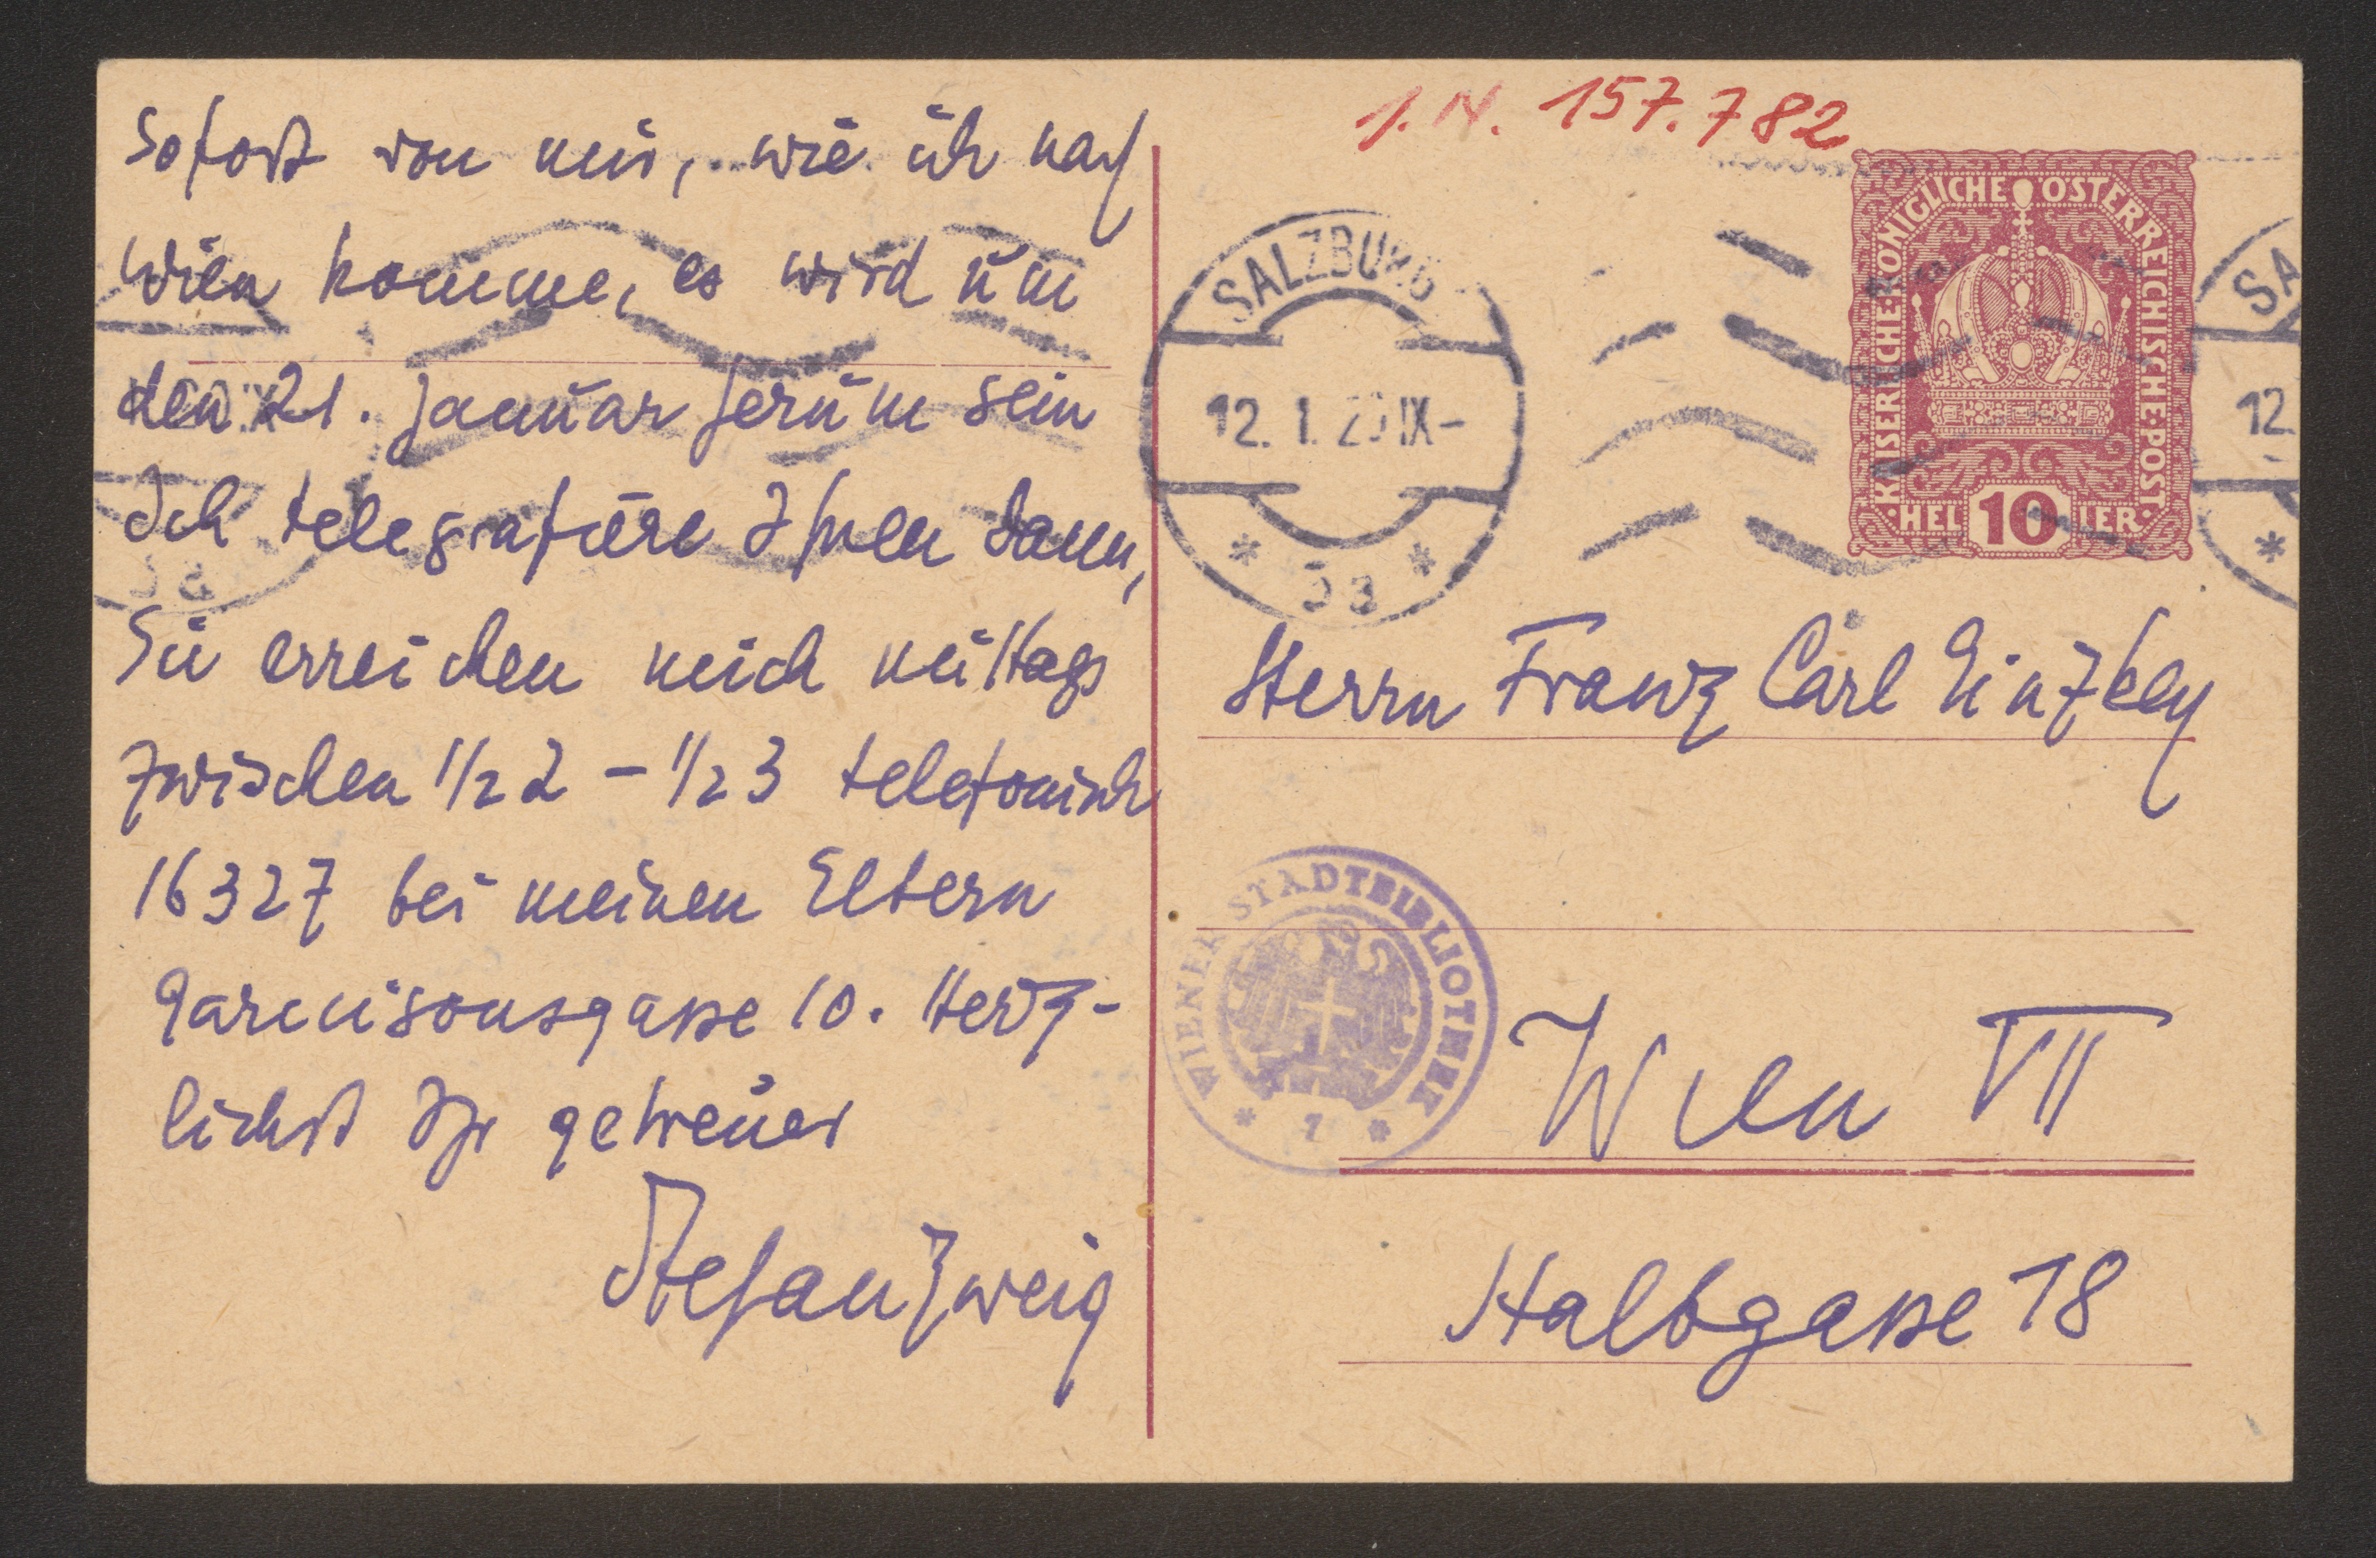 sofort von mir, wie ich nach
Wien komme, es wird um
den 21. Januar herum sein
Ich telegrafiere Ihnen dann,
Sie erreichen mich mittags
zwischen 1/2 2 - 1/2 3 telefonisch
16327 bei meinen Eltern
Garnisonsgasse 10. Herz-
lichst Ihr getreuer
Stefan Zweig
I.N. 157.782
KAISERLICHE·KÖNIGLICHE ÖSTERREICHISCHE·POST·
HEL 10 LER
SALZBURG
12. 1. 20 IX-
SA
12.
Herrn Franz Carl Ginzkey
WIENER STADTBIBLIOTHEK
Wien VII
Halbgasse 18